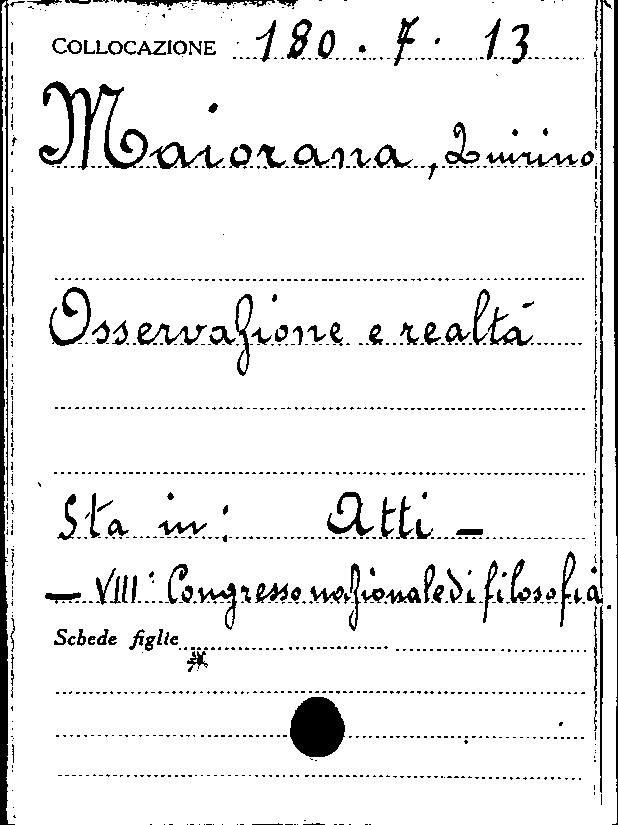 COLLOCAZIONE 180. 7. 13
Maiorana, Quirino
Osservazione e realtà
Sta in: Atti —
— VIII° Congresso nazionale di filosofia.
Schede figlie